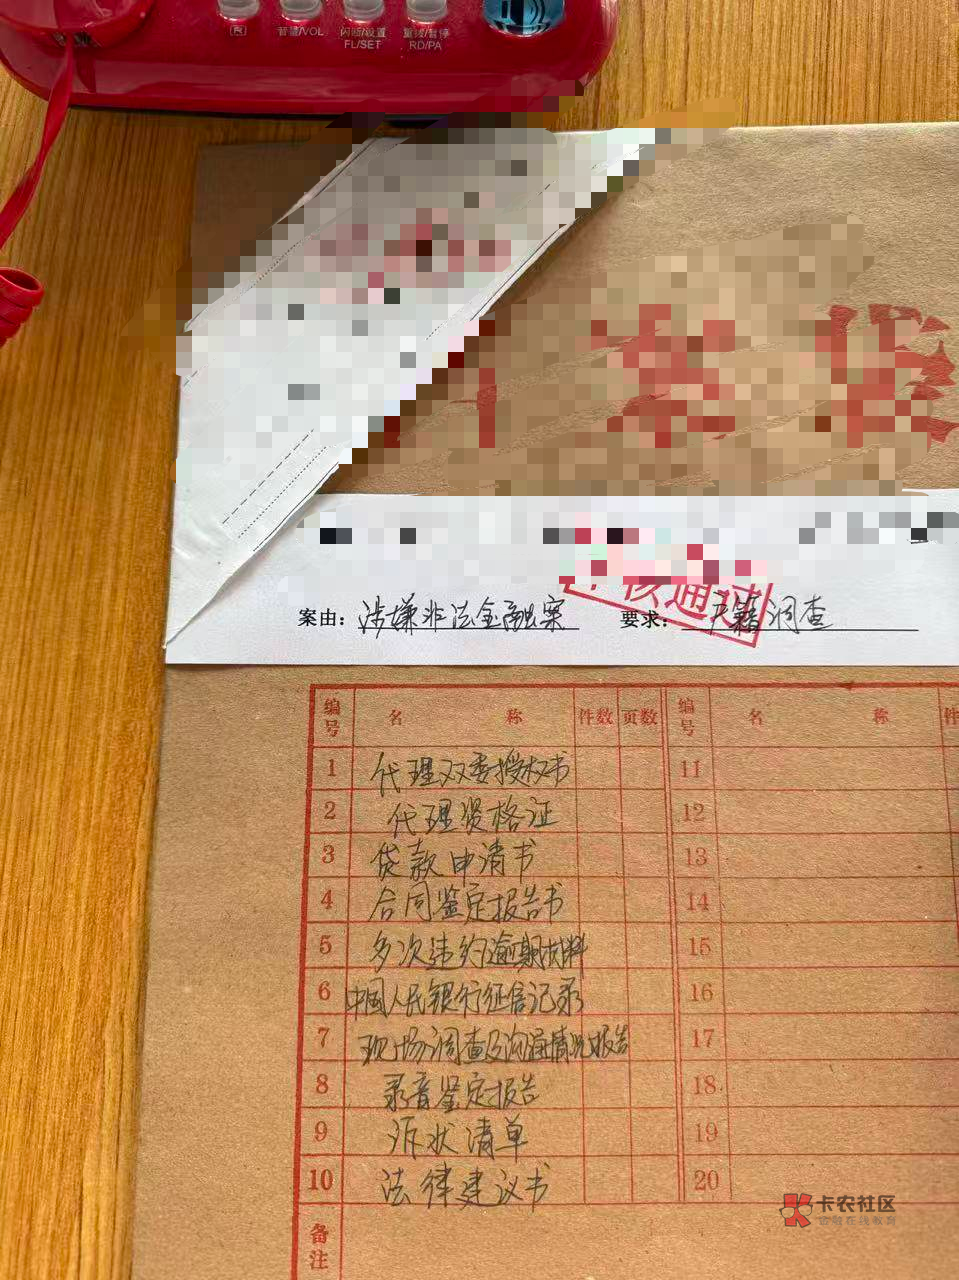 音量/VOL 闪断/设置 重拨/暂停
FL/SET RD/PA
核通过
案由：涉嫌非法金融案 要求：户籍调查
编号 名称 件数 页数 编号 名称 件
1 代理双委授权书 11
2 代理资格证 12
3 贷款申请书 13
4 合同鉴定报告书 14
5 多次违约逾期材料 15
6 中国人民银行征信记录 16
7 现场调查及沟通情况报告 17
8 录音鉴定报告 18
9 诉状清单 19
10 法律建议书 20
备注
卡农社区
金融在线教育